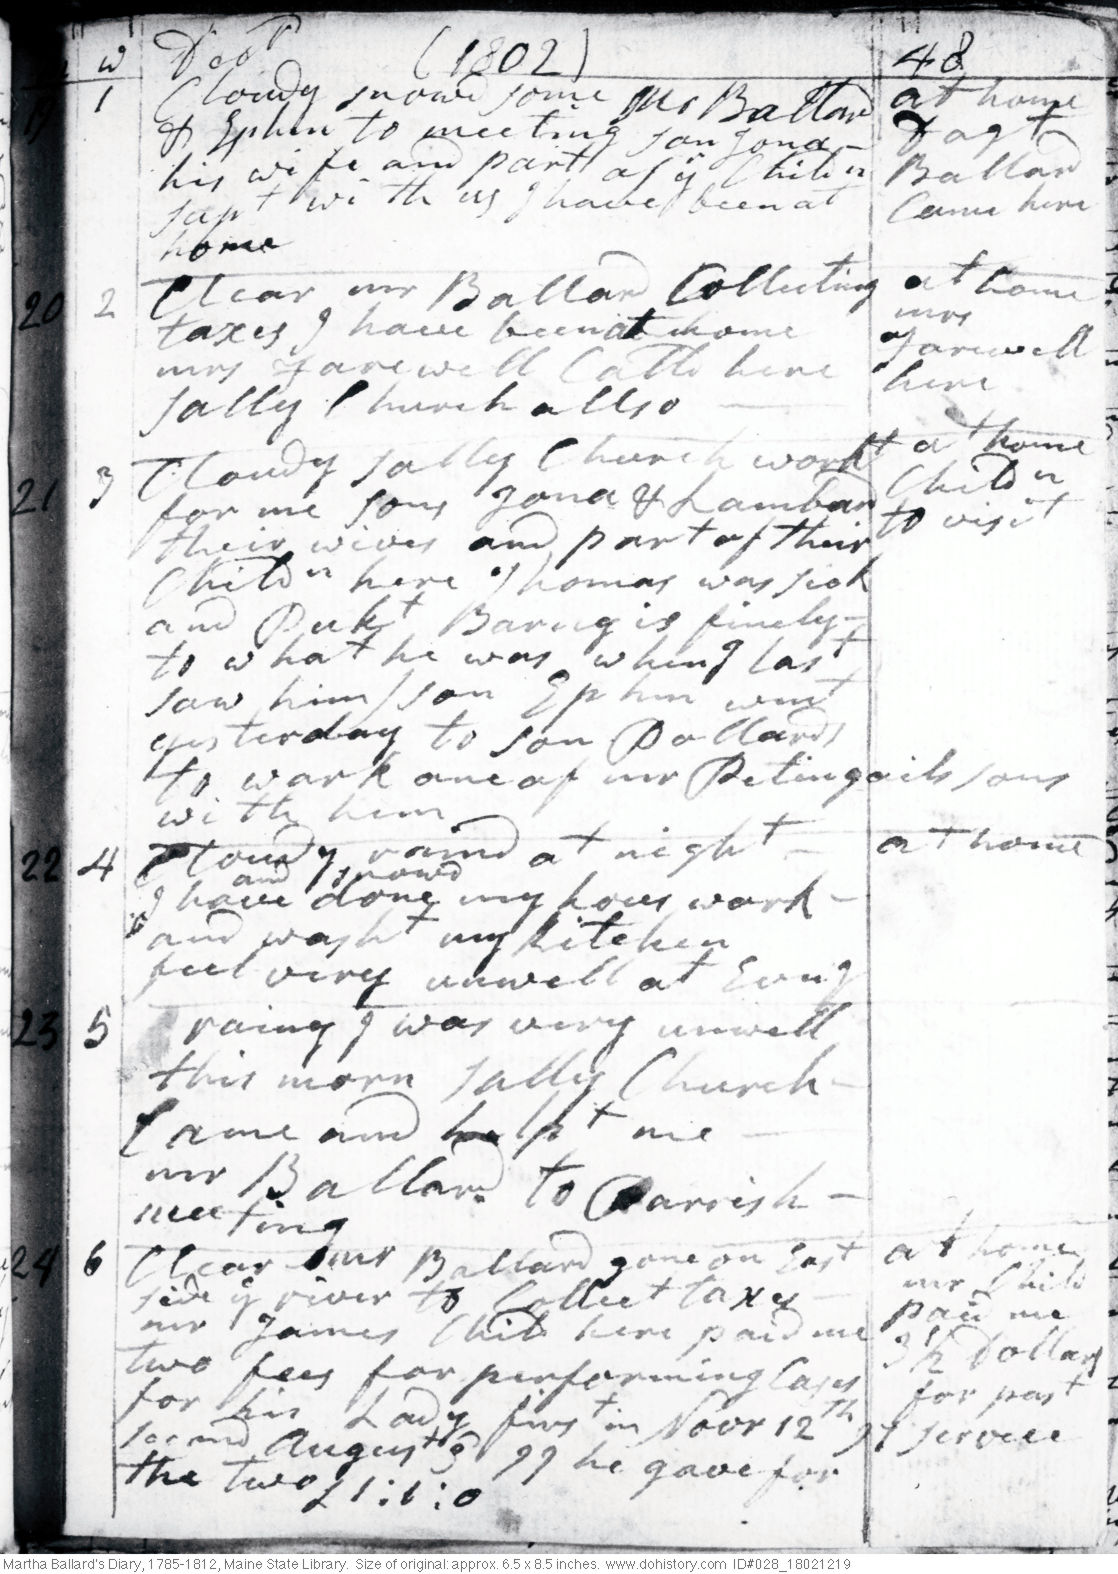 w Decr (1802) 48
19 1 Cloudy snowd some Mr Ballard
& Ephm to meeting son Jona
his wife and part of ye Childn
supt with us I have been at
home
at home
Dagt
Ballard
Came here
20 2 Clear mr Ballard Collecting
taxes I have been at home
mrs Farewell Calld here
Sally Church allso
at home
mrs
Farewell
here
21 3 Cloudy Sally Church workt
for me sons Jona & Lambard
their wives and part of their
Childn here Thomas was sick
and Dukt Barug is finely
to what he was when I last
saw him son Ephm went
yesterday to son Pollards
to work one of mr Petingails sons
with him
at home
Childn
to visit
22 4 Cloudy raind at night
and snowd
I have done my hous work
and washt my kitchen
feel very unwell at Evng
at home
23 5 rainy I was very unwell
this morn Sally Church
Came and helpt me
mr Ballard to Parrish
meeting
24 6 Clear mr Ballard gone on East
side ye river to Collect taxes
mr James Child here paid me
two fees for performing Cases
for his Lady first in Novr 12th 97
second August 3d 99 he gave for
the two £1:1:0
at home
mr Child
paid me
3½ Dollars
for past
service
Martha Ballard's Diary, 1785-1812, Maine State Library. Size of original: approx. 6.5 x 8.5 inches. www.dohistory.com ID#028_18021219